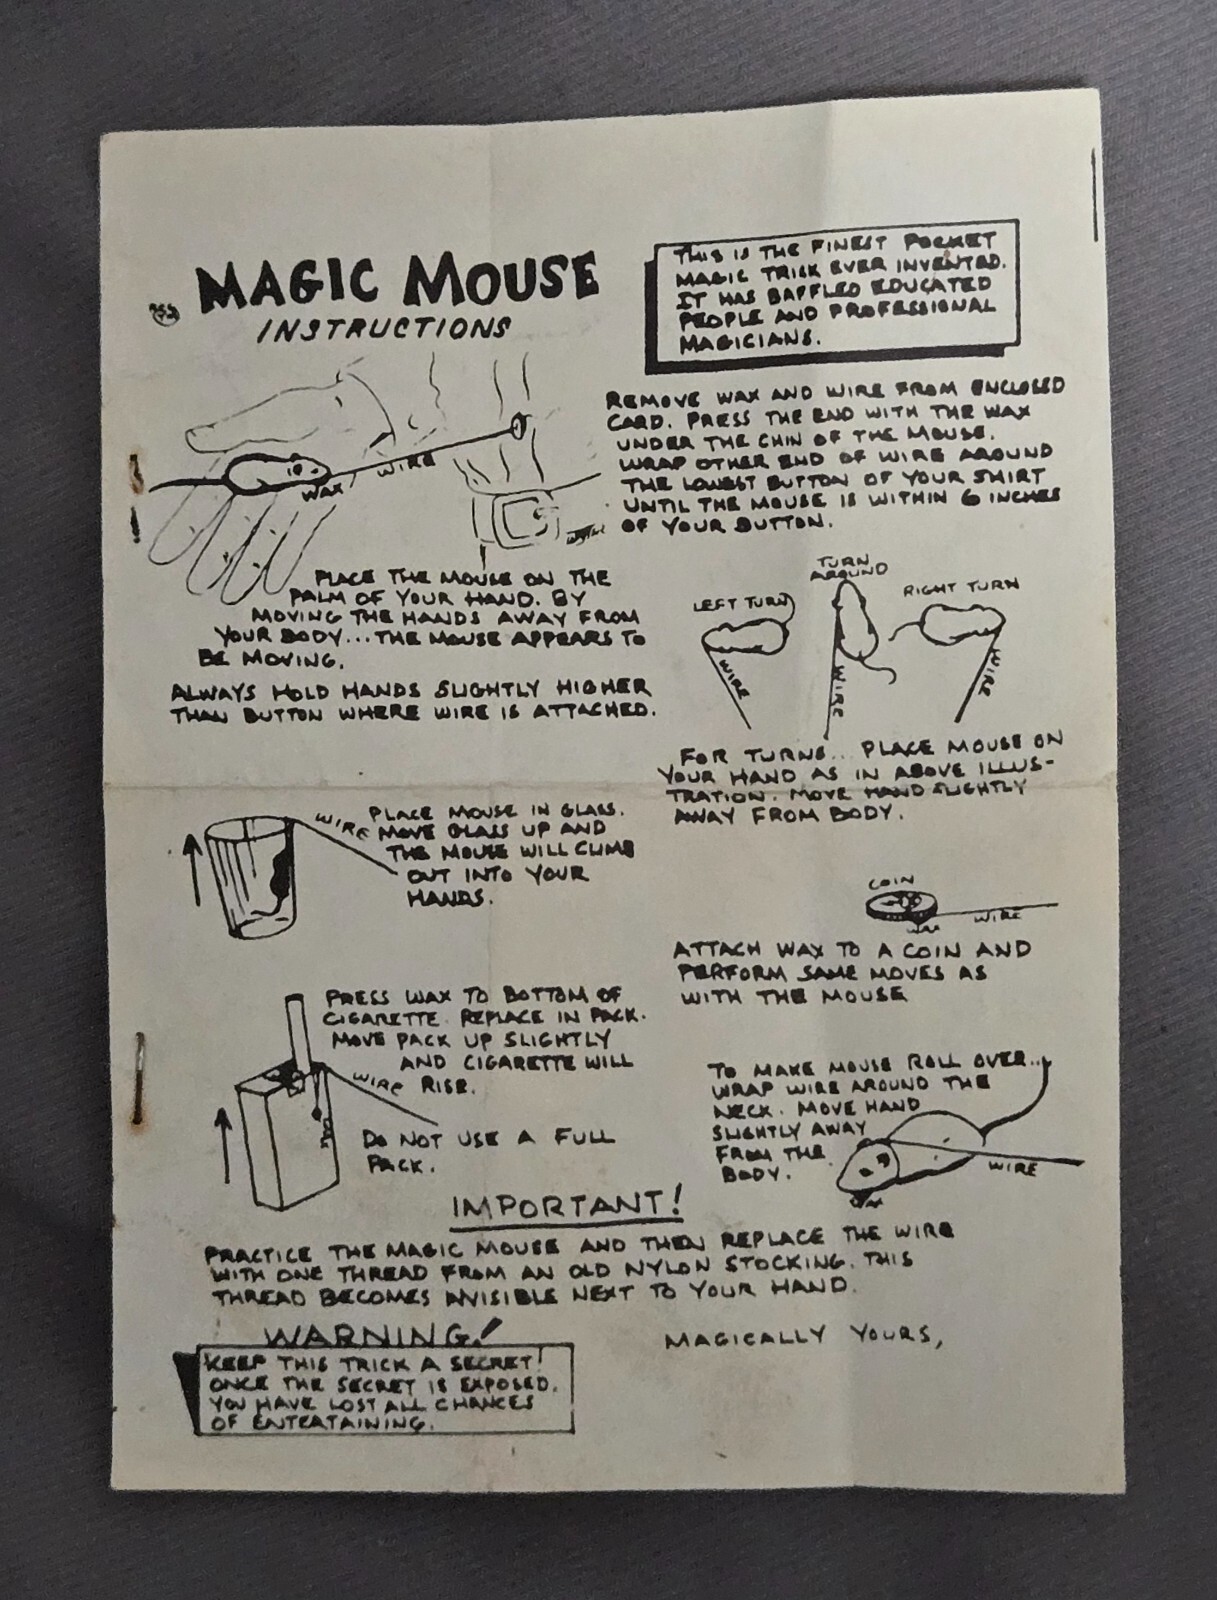 MAGIC MOUSE
INSTRUCTIONS
THIS IS THE FINEST POCKET
MAGIC TRICK EVER INVENTED.
IT HAS BAFFLED EDUCATED
PEOPLE AND PROFESSIONAL
MAGICIANS.
WIRE
WAX
REMOVE WAX AND WIRE FROM ENCLOSED
CARD. PRESS THE END WITH THE WAX
UNDER THE CHIN OF THE MOUSE.
WRAP OTHER END OF WIRE AROUND
THE LOWEST BUTTON OF YOUR SHIRT
UNTIL THE MOUSE IS WITHIN 6 INCHES
OF YOUR BUTTON.
PLACE THE MOUSE ON THE
PALM OF YOUR HAND. BY
MOVING THE HANDS AWAY FROM
YOUR BODY... THE MOUSE APPEARS TO
BE MOVING.
ALWAYS HOLD HANDS SLIGHTLY HIGHER
THAN BUTTON WHERE WIRE IS ATTACHED.
LEFT TURN
TURN
AROUND
RIGHT TURN
WIRE
WIRE
WIRE
FOR TURNS... PLACE MOUSE ON
YOUR HAND AS IN ABOVE ILLUS-
TRATION. MOVE HAND SLIGHTLY
AWAY FROM BODY.
WIRE
PLACE MOUSE IN GLASS.
MOVE GLASS UP AND
THE MOUSE WILL CLIMB
OUT INTO YOUR
HANDS.
COIN
WAX
WIRE
ATTACH WAX TO A COIN AND
PERFORM SAME MOVES AS
WITH THE MOUSE
PRESS WAX TO BOTTOM OF
CIGARETTE. REPLACE IN PACK.
MOVE PACK UP SLIGHTLY
AND CIGARETTE WILL
RISE.
WIRE
WAX
DO NOT USE A FULL
PACK.
TO MAKE MOUSE ROLL OVER...
WRAP WIRE AROUND THE
NECK. MOVE HAND
SLIGHTLY AWAY
FROM THE
BODY.
WIRE
WAX
IMPORTANT!
PRACTICE THE MAGIC MOUSE AND THEN REPLACE THE WIRE
WITH ONE THREAD FROM AN OLD NYLON STOCKING. THIS
THREAD BECOMES INVISIBLE NEXT TO YOUR HAND.
WARNING!
KEEP THIS TRICK A SECRET!
ONCE THE SECRET IS EXPOSED,
YOU HAVE LOST ALL CHANCES
OF ENTERTAINING.
MAGICALLY YOURS,